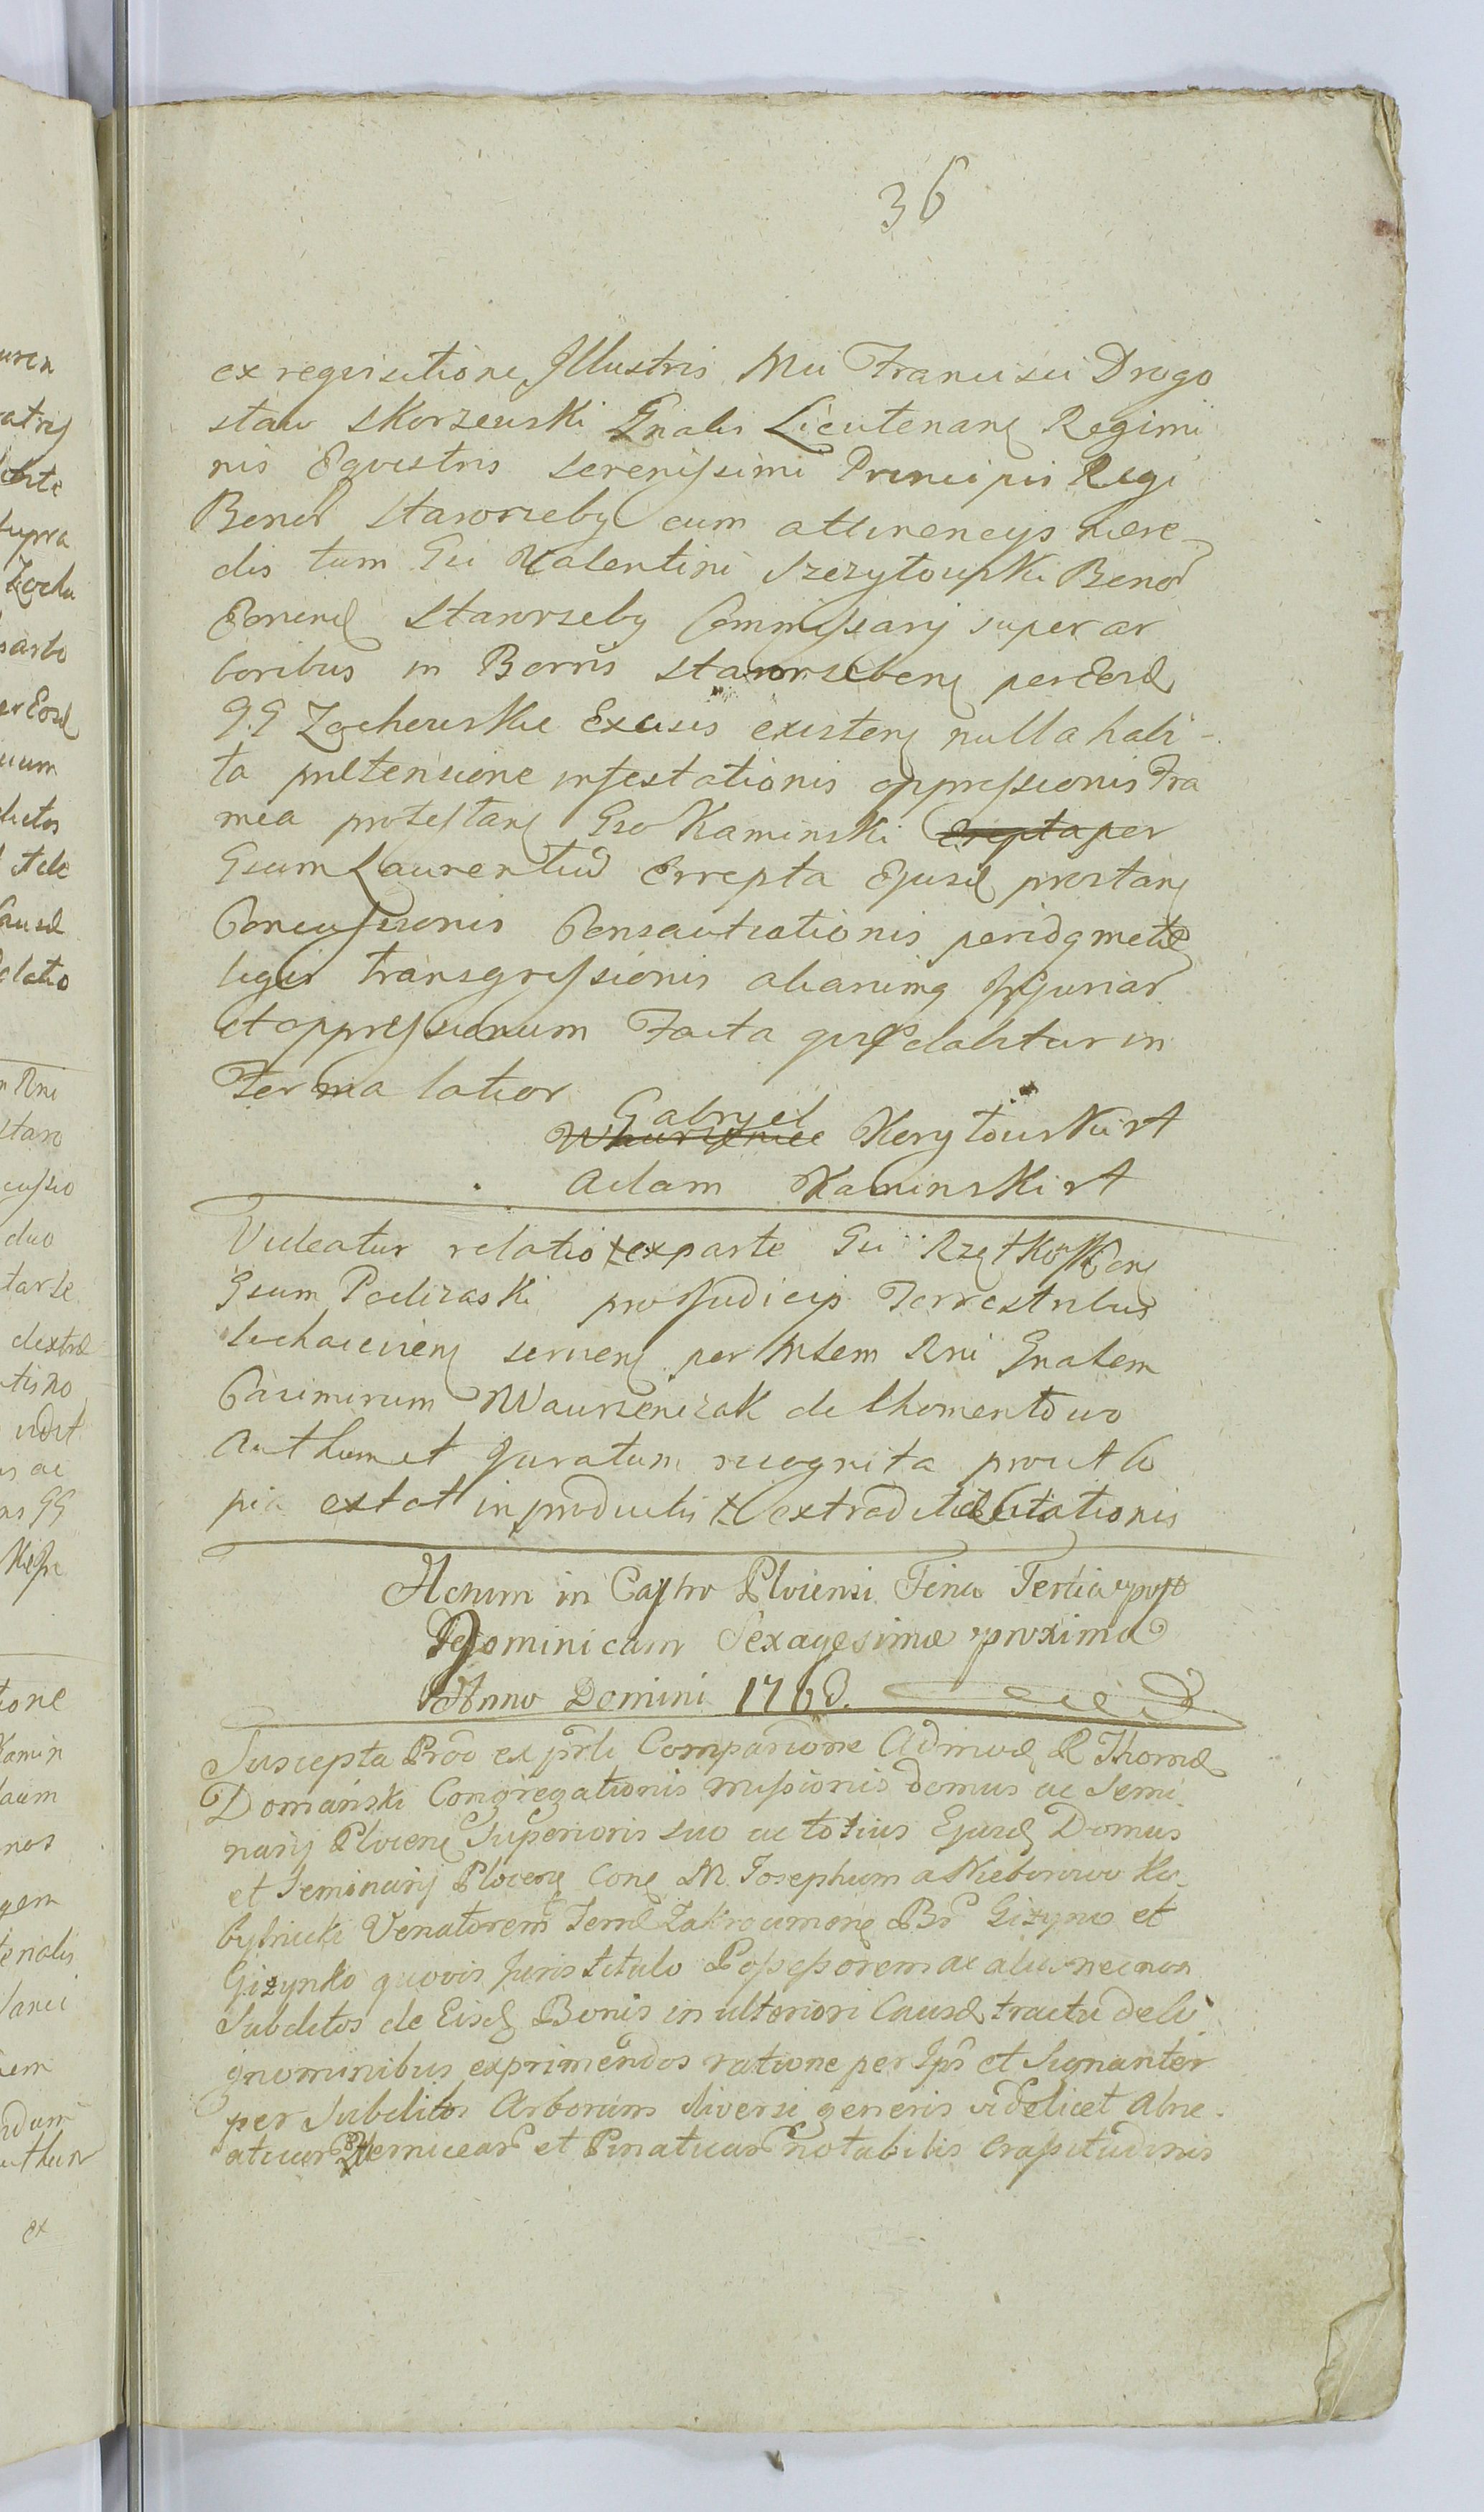 36
ex requisitione Illustris Mci Francisci Drogo
staw Skorzewski Gnalis Lieutenanę Regimi
nis Equestris Serenissimi Principis Regi
Bonor Staworzeby cum attinencijs Here-
dis tum Gsi Valentini Szczytowski Bonor
Staworzeby Commissarij super ar
boribus in Borris per Eosd
GG Zochowskie Excisis existen nulla habi-
ta prætensione infestationis oppressionis Fra
mea protestanę Gso Kaminski erepta per
Gsum Laurentiū Errepta Ejusd prostanę
Concussionis
legis transgressionis aliarumq Injuriar
et oppressionum Facta quæ dabitur in
Forma latior
Gabryel
Adam Kaminski
Videatur relatio ex parte Gsi
Gsum Podczaski pro Judicijs Terrestribus
serviens per Mstem Rni Gnalem
Casimirum Wawrzeniczak de
Authum et Juratum recognita prout Co
pia extat in productis et extraditis Citationis
Actum in Castro Plocensi Feria Tertia post
Dominicam Sexagesimæ proxima
Anno Domini
Suscepta Prõõ ex prti Comparitione Admod R Thomæ
Domański Congregationis Missionis Domus ac Semi
narij Plocenę Superioris suo ac totius Ejusd Domus
et Seminarij Plocenę Conę M. Josephum a Nieborowo Ko
bylnicki Venatorem Terræ Zakroczimenę Br Giżyno et
Giżynko quovis Juris titulo Possessorem ac alios nec non
Subditos de Eisd Bonis in ulteriori Causæ tractu de
gnominibus exprimendos ratione per Ips et Signanter
per Subditos Arborum diversi generis videlicet Abie-
et notabilis Crassitudinis